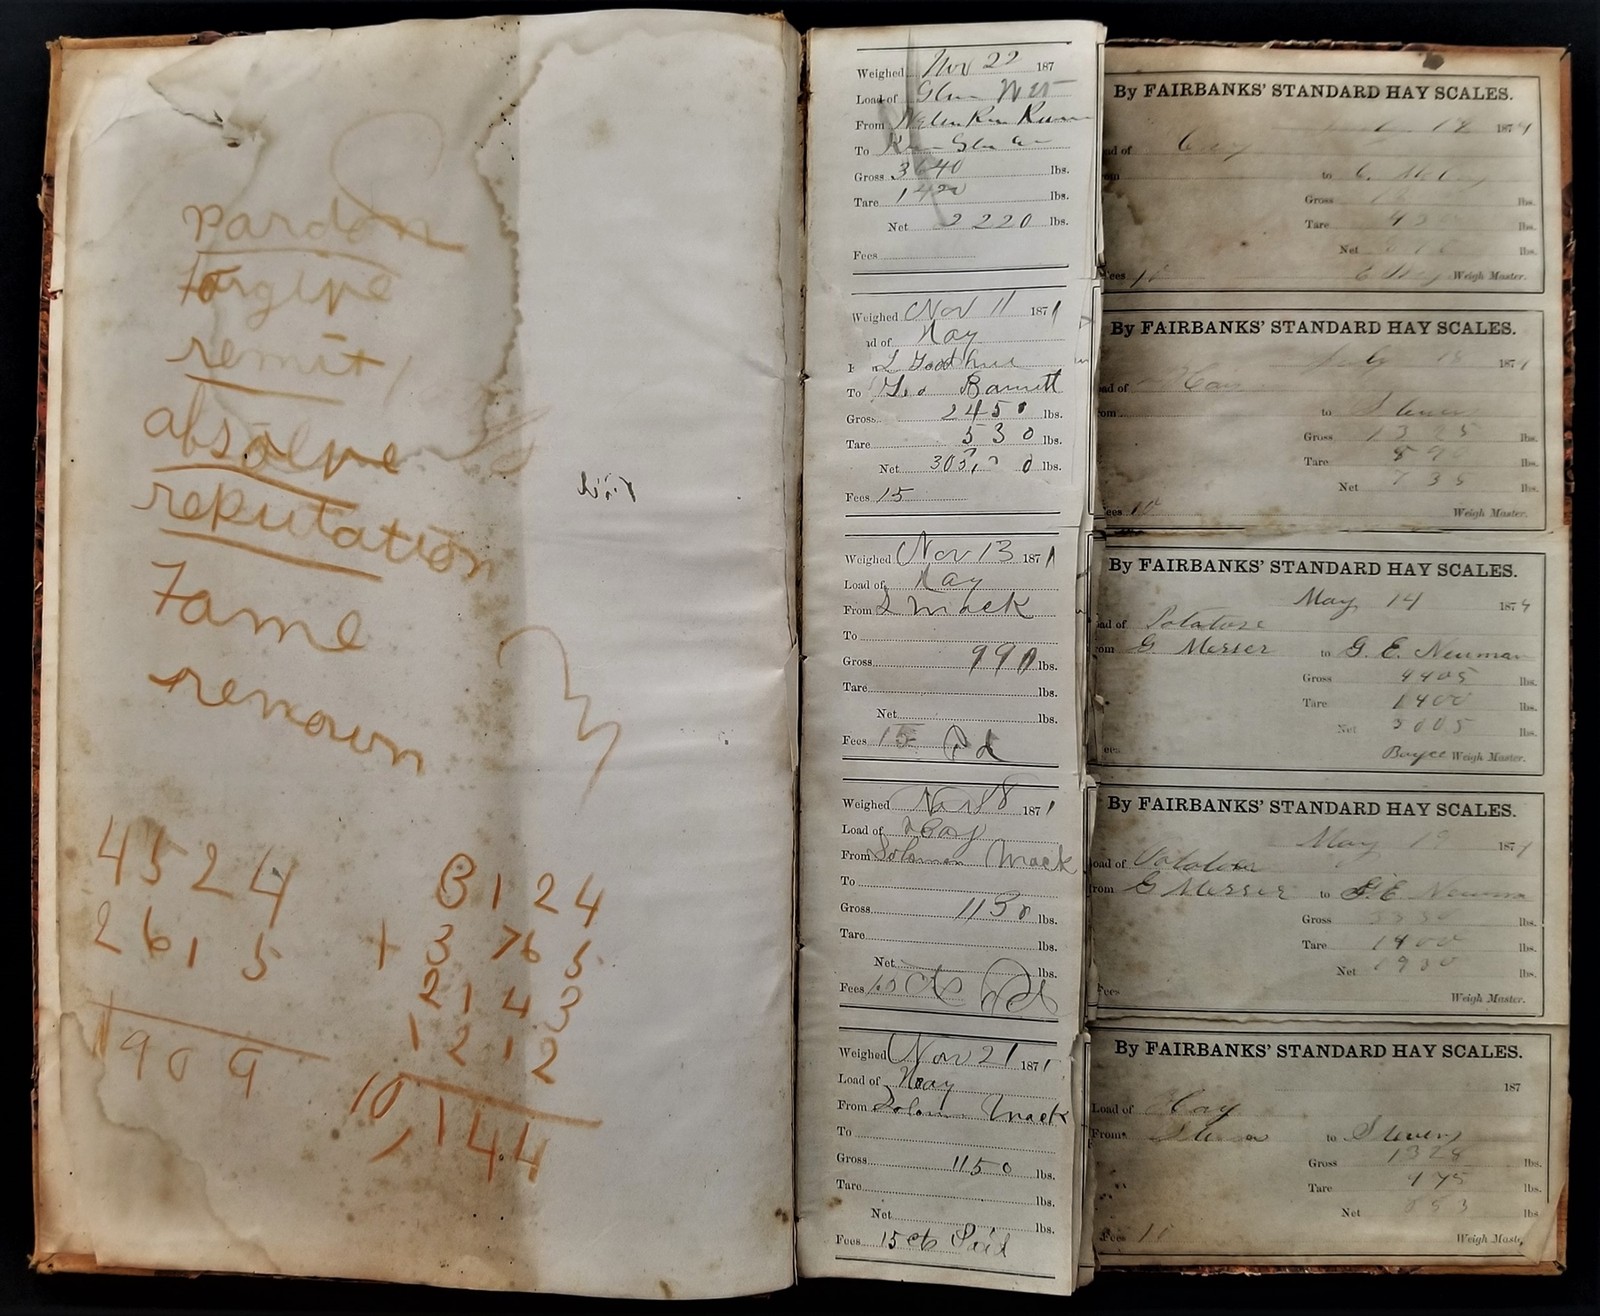 pardon
forgive
remit
absolve
reputation
Fame
renown
4524
2615
1909
3124
+ 3765
2143
1212
10,144
Weighed Nov 22 187
Load of
From
To
Gross 3640 lbs.
Tare 1420 lbs.
Net 2220 lbs.
Fees
Weighed Nov 11 1871
ad of Hay
L Goodhue
To Geo Barnett
Gross 2450 lbs.
Tare 530 lbs.
Net lbs.
Fees 15
Weighed Nov 13 1871
Load of Hay
From L Mack
To
Gross 990 lbs.
Tare lbs.
Net lbs.
Fees 15 Pd
Weighed Nov 18 1871
Load of Hay
From Solomon Mack
To
Gross 1130 lbs.
Tare lbs.
Net lbs.
Fees 10 cts Pd
Weighed Nov 21 1871
Load of Hay
From Solomon Mack
To
Gross 1150 lbs.
Tare lbs.
Net lbs.
Fees 15 cts Paid
By FAIRBANKS' STANDARD HAY SCALES.
18 1874
ad of
om to
Gross lbs.
Tare lbs.
Net lbs.
ees Weigh Master.
By FAIRBANKS' STANDARD HAY SCALES.
July 18 1874
ad of Hay
om to Stevens
Gross 1325 lbs.
Tare 590 lbs.
Net 735 lbs.
ees 10 Weigh Master.
By FAIRBANKS' STANDARD HAY SCALES.
May 14 1874
ad of Potatoes
om G Messer to G. E. Newman
Gross 4405 lbs.
Tare 1400 lbs.
Net 3005 lbs.
ees Boyce Weigh Master.
By FAIRBANKS' STANDARD HAY SCALES.
May 19 1874
oad of Potatoes
from G Messer to G. E. Newman
Gross 3330 lbs.
Tare 1400 lbs.
Net 1930 lbs.
Fees Weigh Master.
By FAIRBANKS' STANDARD HAY SCALES.
187
Load of Hay
From to Stevens
Gross 1328 lbs.
Tare 475 lbs.
Net 853 lbs
Fees Weigh Maste